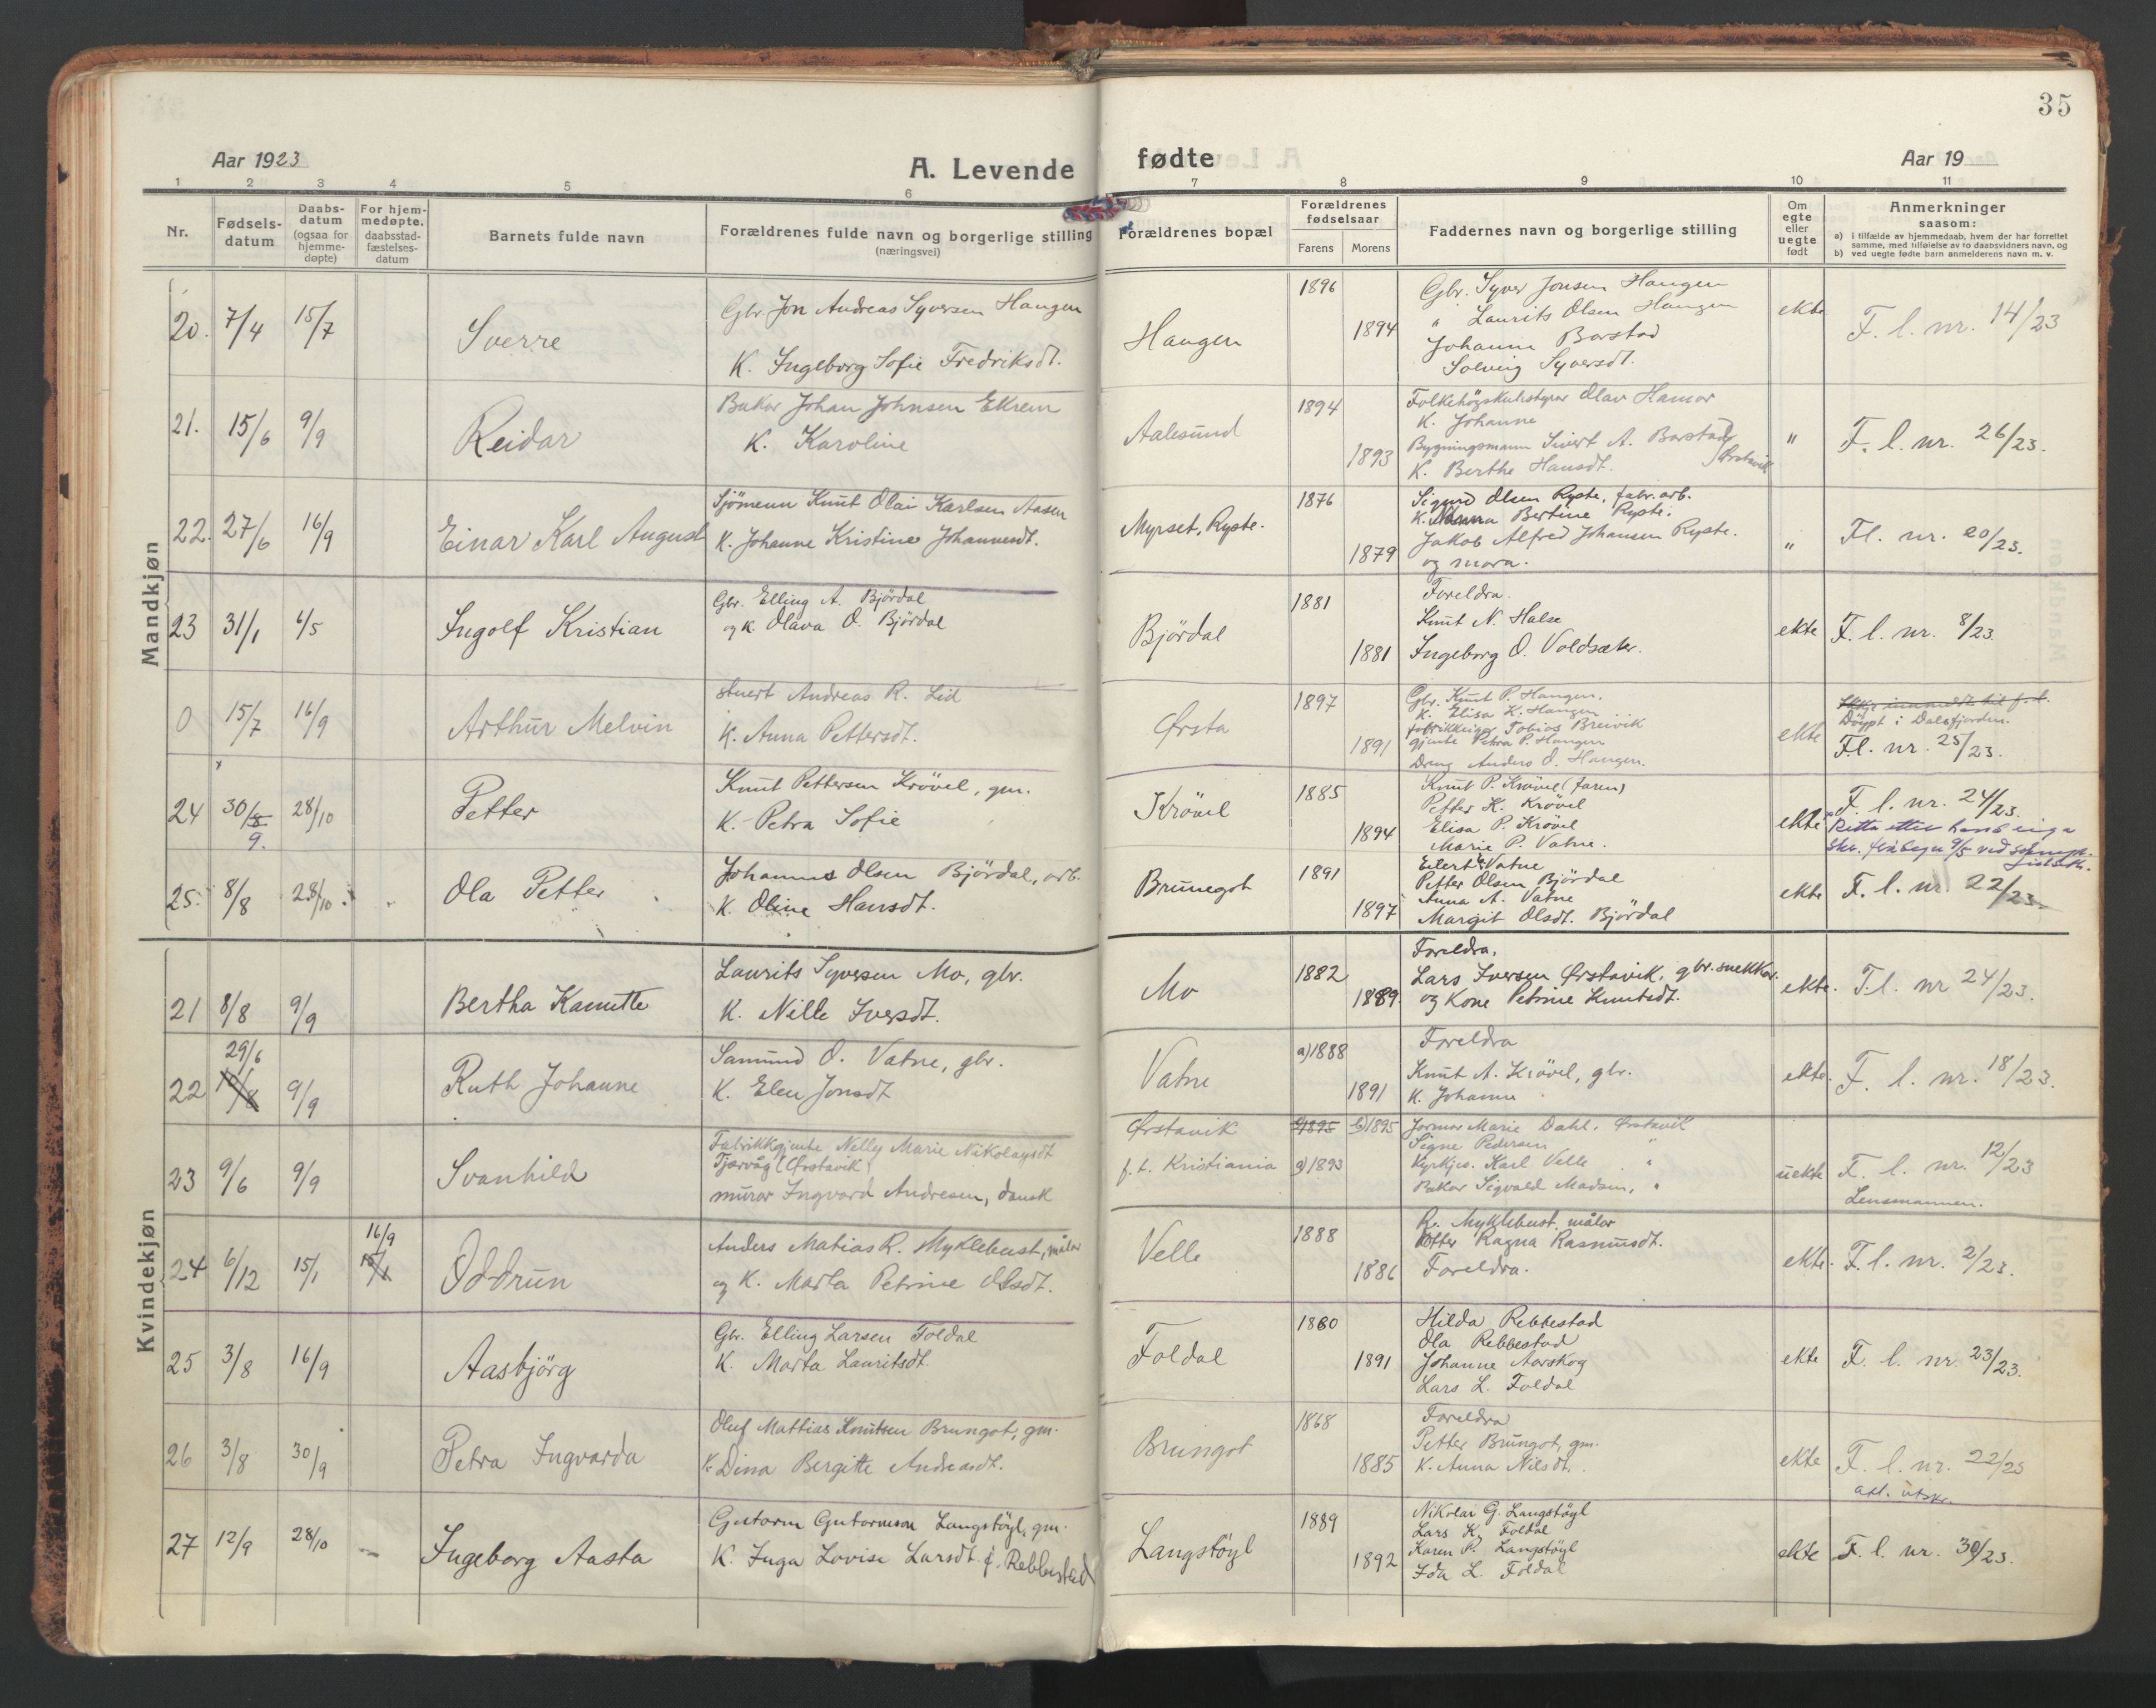 35
Aar 1923
A. Levende
fødte
Aar 19
1 2 3 4 5 6 7 8 9 10 11
Nr.
Fødsels-
datum
Daabs-
datum
(ogsaa for
hjemme-
døpte)
For hjem-
medøpte,
daabsstad-
fæstelses-
datum
Barnets fulde navn
Forældrenes fulde navn og borgerlige stilling
(næringsvei)
Forældrenes bopæl
Forældrenes
fødselsaar
Farens Morens
Faddernes navn og borgerlige stilling
Om
egte
eller
uegte
født
Anmerkninger
saasom:
a) i tilfælde av hjemmedaab, hvem der har forrettet
samme, med tilføielse av to daabsvidners navn, og
b) ved uegte fødte barn anmelderens navn m. v.
Mandkjøn
20. 7/4 15/7 Sverre
Gbr. Jon Andreas Syversen Haugen
K. Ingeborg Sofie Fredriksdt.
Haugen 1896 1894
Gbr. Syver Jonsen Haugen
" Laurits Olsen Haugen
Johanne Barstad
Solveig Syversdt.
ekte F. l. nr. 14/23
21. 15/6 9/9 Reidar
Bakar Johan Johnsen Ekrem
K. Karoline
Aalesund 1894 1893
Folkehögskulestyrar Olav Hamar
K. Johanne
Bygningsmann Sivert A. Barstad
K. Berthe Hansdt.
Ørstavik
" F. l. nr. 26/23.
22. 27/6 16/9 Einar Karl August
Sjömenn Knut Olai Karlsen Aasen
K. Johanne Kristine Johannesdt.
Myrset, Ryste. 1876 1879
Sigurd Olsen Ryste, fabr. arb.
K. Bertine Ryste.
Jakob Alfred Johansen Ryste.
og mora.
" Fl. nr. 20/23.
23 31/1 6/5 Ingolf Kristian
Gbr. Elling A. Björdal
og K. Olava O. Björdal
Björdal 1881 1881
Foreldra.
Knut N. Halse
Ingeborg O. Voldsæter.
ekte F. l. nr. 8/23.
0 15/7 16/9 Arthur Melvin
Stuert Andreas R. Lid
K. Anna Pettersdt.
Ørsta 1897 1891
Gbr. Knut P. Haugen.
K. Elisa K. Haugen
fabrikkeigar Tobias Breivik
gjente Petra P. Haugen
Dreng Anders O. Haugen.
ekte
Döypt i Dalsfjorden.
Fl. nr. 25/23.
24 30/8 9. 28/10 Petter
Knut Pettersen Krövel, gm.
K. Petra Sofie
Krövel 1885 1894
Knut P. Krövel (faren)
Petter K. Krövel
Elisa P. Krövel
Marie P. Vatne.
ekte F. l. nr. 24/23.
Retta etter
25. 8/8 28/10. Ola Petter
Johannes Olsen Björdal, arb.
K. Oline Hansdt.
Brunegot 1891 1897
Eilert Vatne
Petter Olsen Björdal
Anna A. Vatne
Margit Olsdt. Björdal
ekte F. l. nr. 22/23.
Kvindekjøn
21 8/8 9/9 Bertha Kamitte
Laurits Syversen Mo, gbr.
K. Nille Iversdt.
Mo 1882 1889
Foreldra.
Lars Iversen Ørstavik, gbr. snekkar.
og Kone Petrine Knutsdt.
ekte. F. l. nr 24/23.
22 29/6 10/8 9/9 Ruth Johanne
Samund O. Vatne, gbr.
K. Elen Jonsdt
Vatne a) 1888 1891
Foreldra
Knut A. Krövel, gbr.
K. Johanne
ekte. F. l. nr. 18/23.
23 9/6 9/9 Svanhild
Fabrikkgjente Nelly Marie Nikolaysdt
Tjærvåg (Ørstavik)
murar Ingvard Andresen, dansk
Ørstavik
f. t. Kristiania
1895 b) 1895
a) 1893
Jormor Marie Dahl, Ørstavik
Signe Pedersen "
Kyrkjes. Karl Velle "
Bakar Sigvald Madsen, "
uekte F. l. nr. 12/23
Lensmannen.
24 6/12 15/1 16/9 Oddrun
Anders Matias R. Myklebust, målar
og K. Marta Petrine Olsdt.
Velle 1888 1886
R. Myklebust målar
Ragna Rasmusdt.
Foreldra.
ekte. F. l. nr. 2/23.
25 3/8 16/9 Aasbjörg
Gbr. Elling Larsen Foldal
K. Marta Lauritsdt.
Foldal 1880 1891
Hilda Rebbestad
Ola Rebbestad
Johanne Aarskog
Lars L. Foldal
ekte F. l. nr. 23/23.
26 3/8 30/9 Petra Ingvarda
Oluf Mattias Knutsen Brungot, gm.
K. Dina Bergitte Andreasdt.
Brungot 1868 1885
Foreldra
Petter Brungot, gm.
K. Anna Nilsdt.
ekte F. l. nr. 22/23
att. utskr.
27 12/9 28/10 — Ingeborg Aasta
Gutorm Gutormson Langstöyl, gm.
K. Inga Lovise Larsdt f. Rebbestad
Langstöyl 1889 1892
Nikolai G. Langstöyl
Lars K. Foldal
Karen P. Langstöyl
Ida L. Foldal
ekte F. l. nr. 30/23.